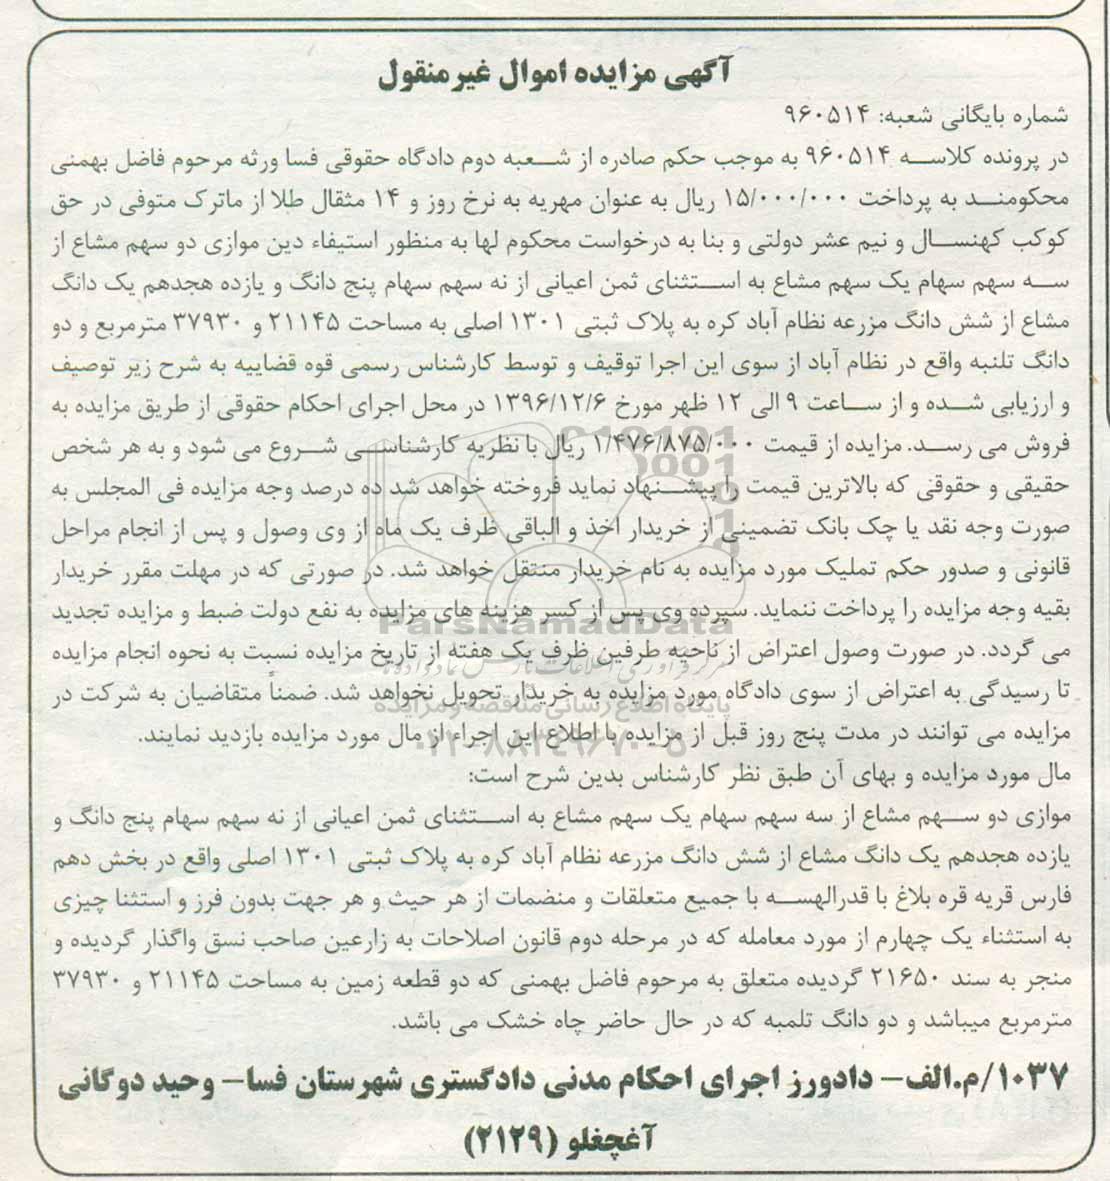 آگهی مزایده اموال غیرمنقول
شماره بایگانی شعبه: ۹۶۰۵۱۴
در پرونده کلاسه ۹۶۰۵۱۴ به موجب حکم صادره از شعبه دوم دادگاه حقوقی فسا ورثه مرحوم فاضل بهمنی
محکومند به پرداخت ۱۵/۰۰۰/۰۰۰ ریال به عنوان مهریه به نرخ روز و ۱۴ مثقال طلا از ماترک متوفی در حق
کوکب کهنسال و نیم عشر دولتی و بنا به درخواست محکوم لها به منظور استیفاء دین موازی دو سهم مشاع از
سه سهم سهام یک سهم مشاع به استثنای ثمن اعیانی از نه سهم سهام پنج دانگ و یازده هجدهم یک دانگ
مشاع از شش دانگ مزرعه نظام آباد کره به پلاک ثبتی ۱۳۰۱ اصلی به مساحت ۲۱۱۴۵ و ۳۷۹۳۰ مترمربع و دو
دانگ تلنبه واقع در نظام آباد از سوی این اجرا توقیف و توسط کارشناس رسمی قوه قضاییه به شرح زیر توصیف
و ارزیابی شده و از ساعت ۹ الی ۱۲ ظهر مورخ ۱۳۹۶/۱۲/۶ در محل اجرای احکام حقوقی از طریق مزایده به
فروش می رسد. مزایده از قیمت ۱/۴۷۶/۸۷۵/۰۰۰ ریال با نظریه کارشناسی شروع می شود و به هر شخص
حقیقی و حقوقی که بالاترین قیمت را پیشنهاد نماید فروخته خواهد شد ده درصد وجه مزایده فی المجلس به
صورت وجه نقد یا چک بانک تضمینی از خریدار اخذ و الباقی ظرف یک ماه از وی وصول و پس از انجام مراحل
قانونی و صدور حکم تملیک مورد مزایده به نام خریدار منتقل خواهد شد. در صورتی که در مهلت مقرر خریدار
بقیه وجه مزایده را پرداخت ننماید. سپرده وی پس از کسر هزینه های مزایده به نفع دولت ضبط و مزایده تجدید
می گردد. در صورت وصول اعتراض از ناحیه طرفین ظرف یک هفته از تاریخ مزایده نسبت به نحوه انجام مزایده
تا رسیدگی به اعتراض از سوی دادگاه مورد مزایده به خریدار تحویل نخواهد شد. ضمناً متقاضیان به شرکت در
مزایده می توانند در مدت پنج روز قبل از مزایده با اطلاع این اجراء از مال مورد مزایده بازدید نمایند.
مال مورد مزایده و بهای آن طبق نظر کارشناس بدین شرح است:
موازی دو سهم مشاع از سه سهم سهام یک سهم مشاع به استثنای ثمن اعیانی از نه سهم سهام پنج دانگ و
یازده هجدهم یک دانگ مشاع از شش دانگ مزرعه نظام آباد کره به پلاک ثبتی ۱۳۰۱ اصلی واقع در بخش دهم
فارس قریه قره بلاغ با قدرالهسه با جمیع متعلقات و منضمات از هر حیث و هر جهت بدون فرز و استثنا چیزی
به استثناء یک چهارم از مورد معامله که در مرحله دوم قانون اصلاحات به زارعین صاحب نسق واگذار گردیده و
منجر به سند ۲۱۶۵۰ گردیده متعلق به مرحوم فاضل بهمنی که دو قطعه زمین به مساحت ۲۱۱۴۵ و ۳۷۹۳۰
مترمربع میباشد و دو دانگ تلمبه که در حال حاضر چاه خشک می باشد.
۱۰۳۷/م.الف- دادورز اجرای احکام مدنی دادگستری شهرستان فسا- وحید دوگانی
آغچغلو (۲۱۲۹)
ParsNamadData
پایگاه اطلاع رسانی مناقصه و مزایده